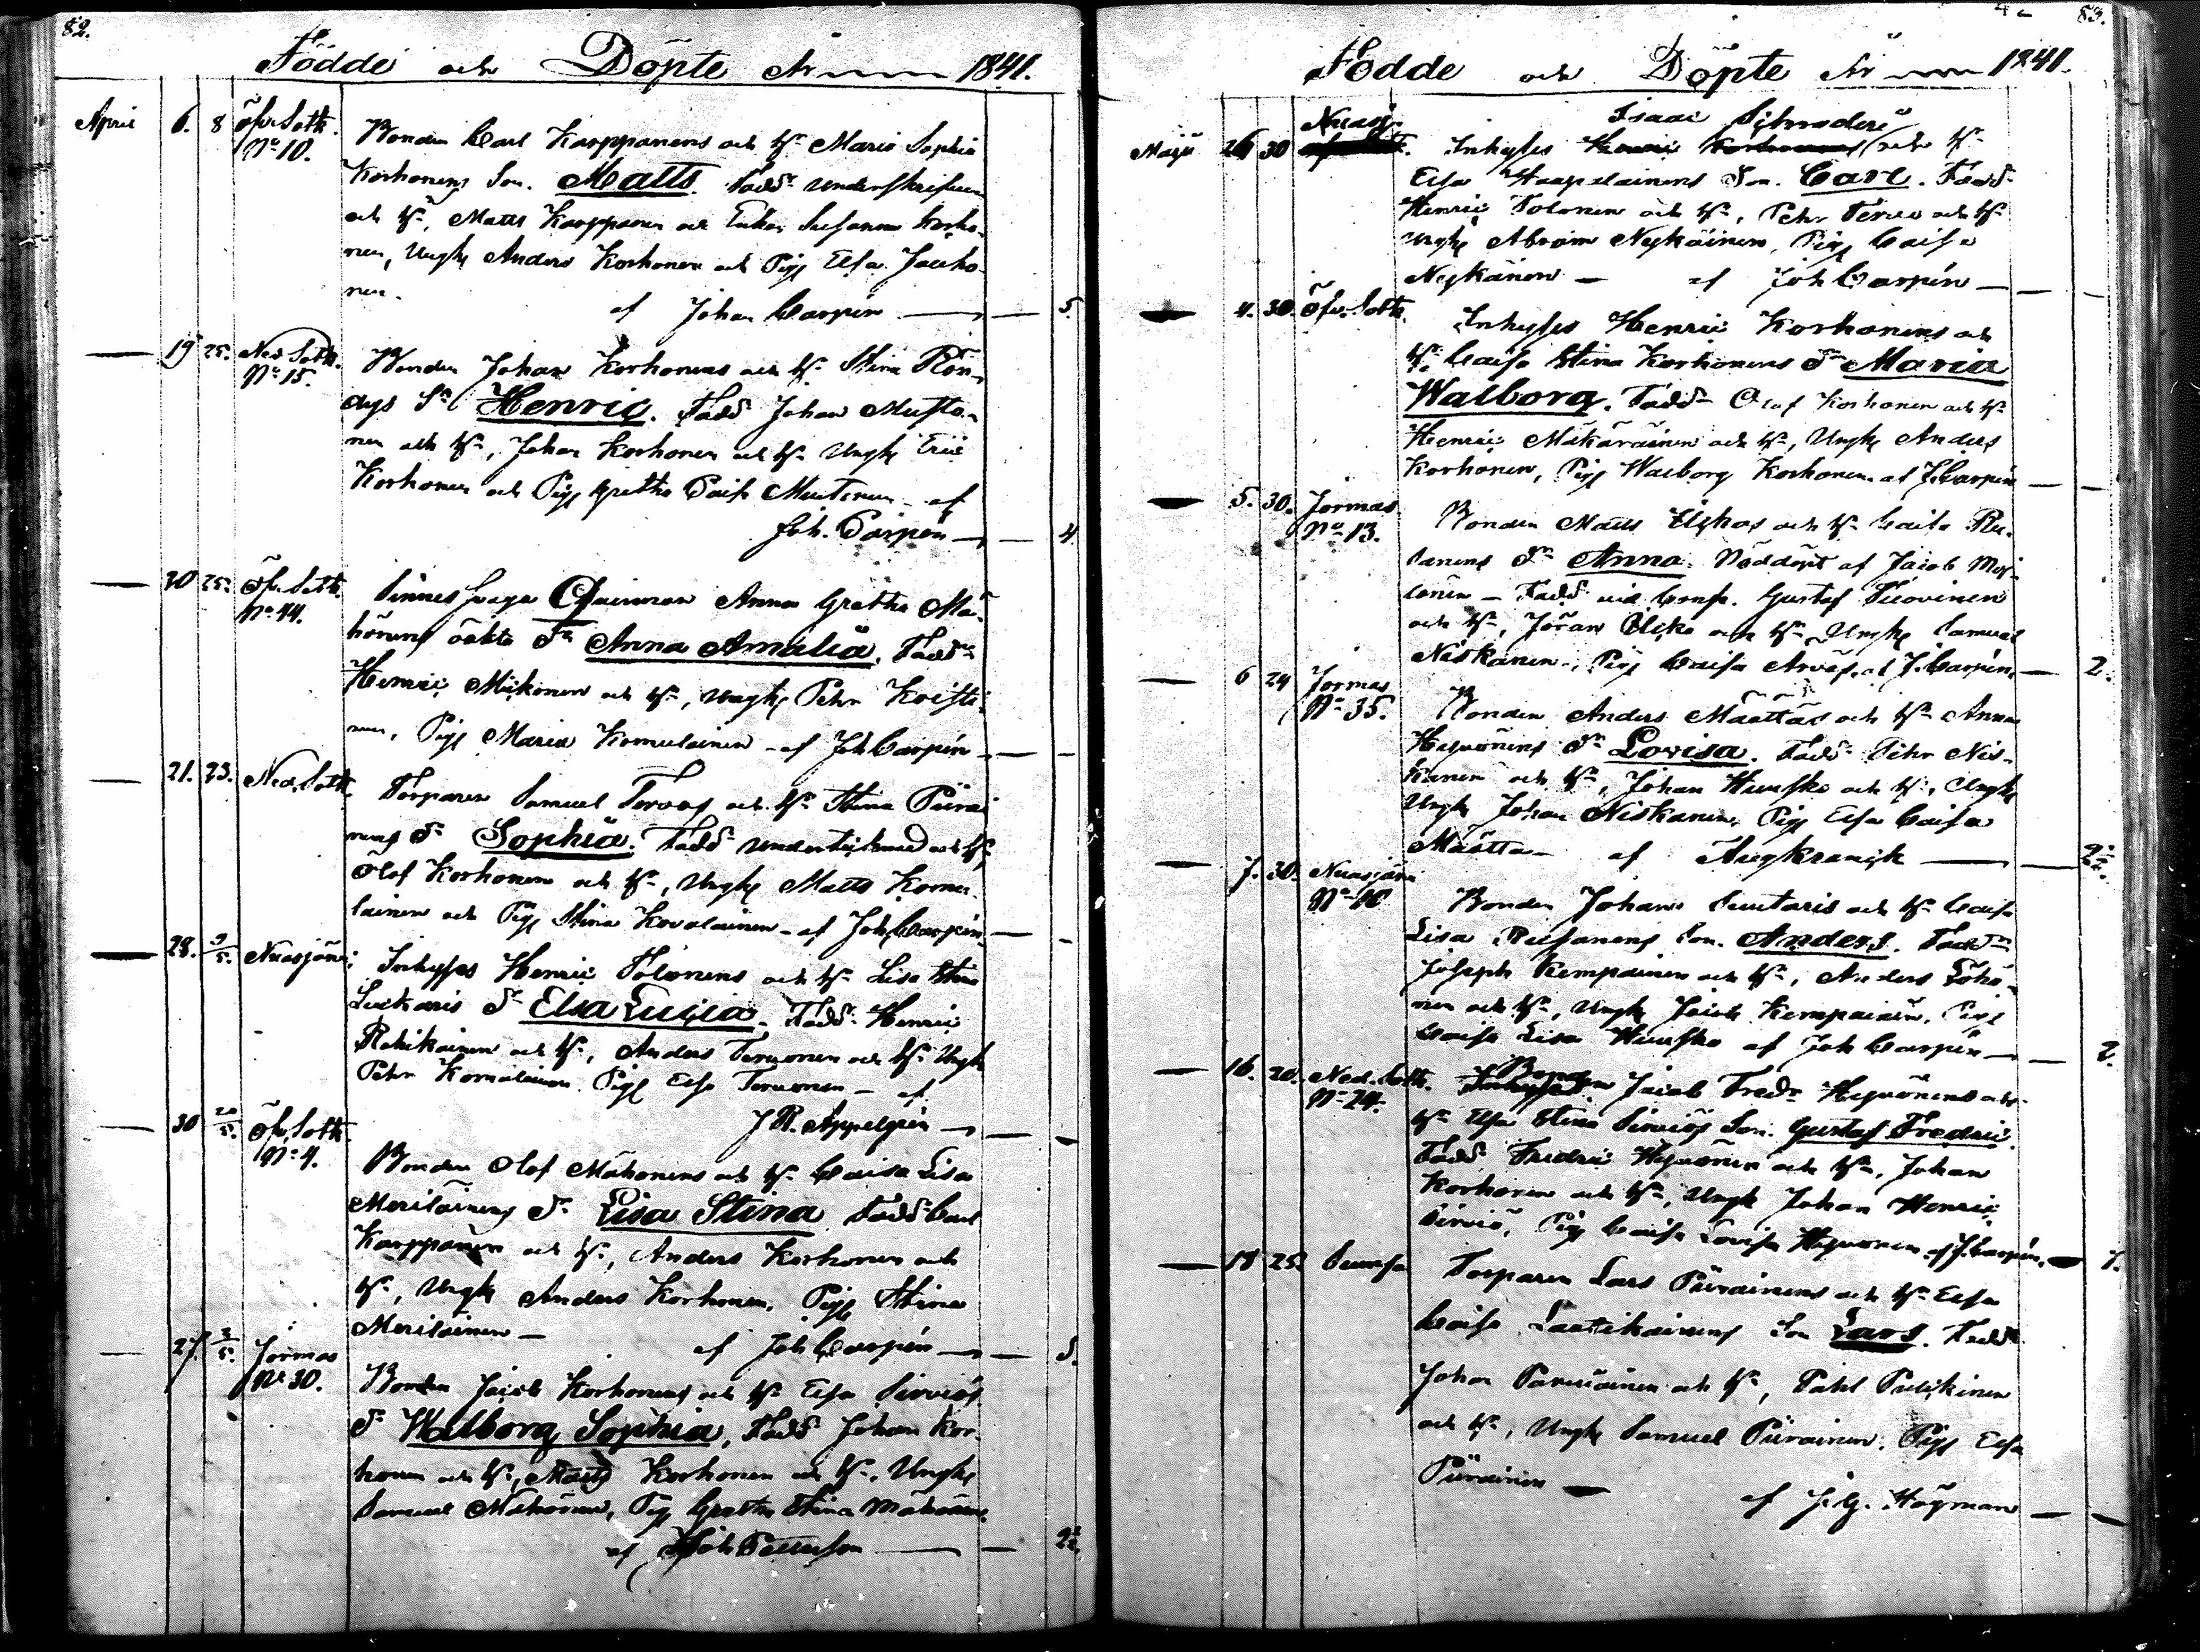 82.
Födde och Döpte År 1841.
April 6. 8 Öfv. Sotk. N:o 10.
Bonden Carl Karppanens och h:u Maria Sophia
Korhonens Son. Matts. Fadd:r underskrifven
och h:u, Matts Karppanen och Enkan Susanna Korho-
nen, Ungk Anders Korhonen och Pig Elsa Jauho-
nen.
af Johan Carpén — 5.
— 19 25. Ned. Sotk. N:o 15.
Bonden Johan Korhonens och h:u Stina Rön-
dys S. Henric. Fadd Johan Musto-
nen och h:u, Johan Korhonen och h:u Ungk Eric
Korhonen och Pig Gretha Caisa Mustonen af
Joh. Carpén — 4.
— 20 25. Öfv. Sotk. N:o 44.
Sinnessvaga Qvinnan Anna Gretha Mä-
hönens oäkta D:r Anna Amalia. Fadd:r
Henric Mikonen och h:u, Ungk Petr Koisti-
nen, Pig Maria Komulainen — af Joh Carpén —
— 21. 23. Ned. Sotk.
Torparen Samuel Tervos och h:u Stina Piirai-
nens D:r Sophia. Fadd:r undertecknad och h:u
Olof Korhonen och h:u, Ungk Matts Komu-
lainen och Pig Stina Kovalainen — af Joh. Carpén —
— 28. 9/5. Nuasjärvi
Inhyses Henric Tolonens och h:u Lisa Stina
D:r Elsa Lucia. Fadd:r Henric
och h:u, Anders Tervonen och h:u Ungk
Petr Komulainen. Pig Elsa Tervonen — af
J R. Appelgrén —
— 30 20/5. Öfv. Sotk. N:o 4.
Bonden Olof Mähönens och h:u Caisa Lisa
Meriläinens D:r Lisa Stina Fadd:r Carl
Karppanen och h:u, Anders Korhonen och
h:u, Ungk Anders Korhonen, Pig Stina
Meriläinen —
af Joh Carpén — 5.
— 27. 2/5. Jormas N:o 30.
Bonden Jacob Korhonens och h:u Elsa Sirviös
D:r Walborg Sophia, Fadd Johan Kor-
honen och h:u, Matts Korhonen och h:u, Ungk
Samuel Mähönen, Pig Gretha Stina Mähönen
af Joh Petterson — 2 1/2.
83.
Födde och Döpte År 1841.
Isaac Schroderi
Majii 26 30 Nuasj.
Inhyses och h:u
Elsa Haapalainens Son. Carl. Fadd:
Henric Tolonen och h:u, Petr Tervo och h:u
Ungk Abram Nykäinen, Pig Caisa
Nykänen — af Joh Carpén —
— 4. 30. Öfv. Sotk.
Inhyses Henric Korhonens och
h:u Caisa Stina Korhonens D:r Maria
Walborg. Fadd:r Olof Korhonen och h:u
Henric Mäkäräinen och h:u, Ungk Anders
Korhonen, Pig Walborg Korhonen. af J. Carpén —
— 5. 30. Jormas N:o 13.
Bonden Matts och h:u Caisa Ru-
sanens D:r Anna. Nöddöpt af Jacob
— Fadd vid Conf. Gustaf Tuovinen
och h:u, Jöran och h:u Ungk Samuel
Niskanen, Pig Caisa af J. Carpén — 2.
— 6 29 Jormas N:o 35.
Bonden Anders Määttäs och h:u Anna
Heyvönens D:r Lovisa. Fadd:r Petr Nis-
kanen och h:u, Johan Hunsko och h:u, Ungk
Ungk Johan Niskanen, Pig Elsa Caisa
Määttä — af — 2 1/2.
— 7. 30. Nuasjärvi N:o 10
Bonden Johan Suutaris och h:u Caisa
Lisa Rusanens Son. Anders. Fadd:r
Joseph Kempainen och h:u, Anders
och h:u, Ungk Jacob Kempainen, Pig
Caisa Lisa Hunsko af Joh Carpén — 2.
— 16. 20. Ned. Sotk. N:o 24.
Bonden Jacob Fredr Heyvönens och
h:u Elsa Stina Sirviös Son. Gustaf Fredric.
Fadd Fredric Heyvönen och h:u, Johan
Korhonen och h:u, Ungk Johan Henric
Sirviö, Pig Caisa Lovisa Heyvönen af J. Carpén. — 1.
— 18 25
Torparen Lars Piirainens och h:u Elsa
Caisa Laatikainens Son Lars. Fadd:r
Johan och h:u, Påhl Pulkkinen
och h:u, Ungk Samuel Piirainen, Pig Elsa
Piirainen —
af J. G. Högman —